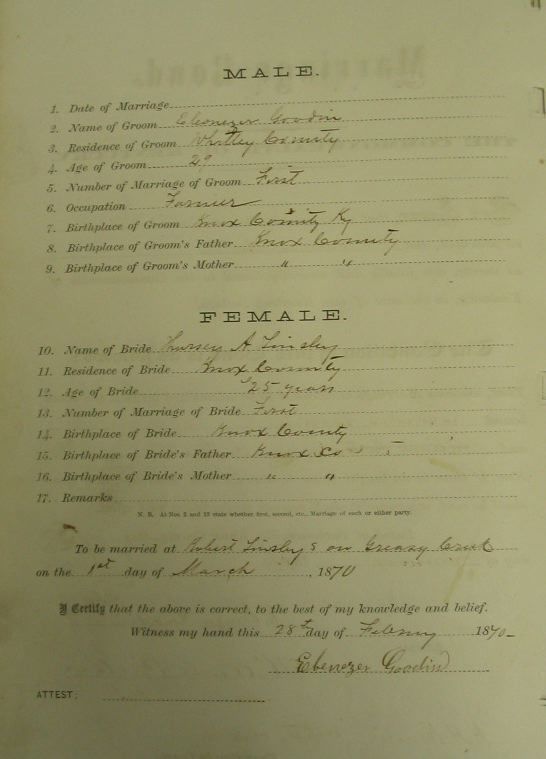 MALE.
1. Date of Marriage
2. Name of Groom Ebenezer Goodin
3. Residence of Groom Whitley County
4. Age of Groom 29
5. Number of Marriage of Groom First
6. Occupation Farmer
7. Birthplace of Groom Knox County Ky
8. Birthplace of Groom's Father Knox County
9. Birthplace of Groom's Mother " "
FEMALE.
10. Name of Bride A Tinsley
11. Residence of Bride Knox County
12. Age of Bride 25 years
13. Number of Marriage of Bride First
14. Birthplace of Bride Knox County
15. Birthplace of Bride's Father Knox Co
16. Birthplace of Bride's Mother " "
17. Remarks
N. B. At Nos. 5 and 13 state whether first, second, etc., Marriage of each or either party.
To be married at Robert Tinsley s on Greasy Creek
on the 1st day of March , 1870
I Certify that the above is correct, to the best of my knowledge and belief.
Witness my hand this 28th day of 1870
Ebenezer Goodin
ATTEST: